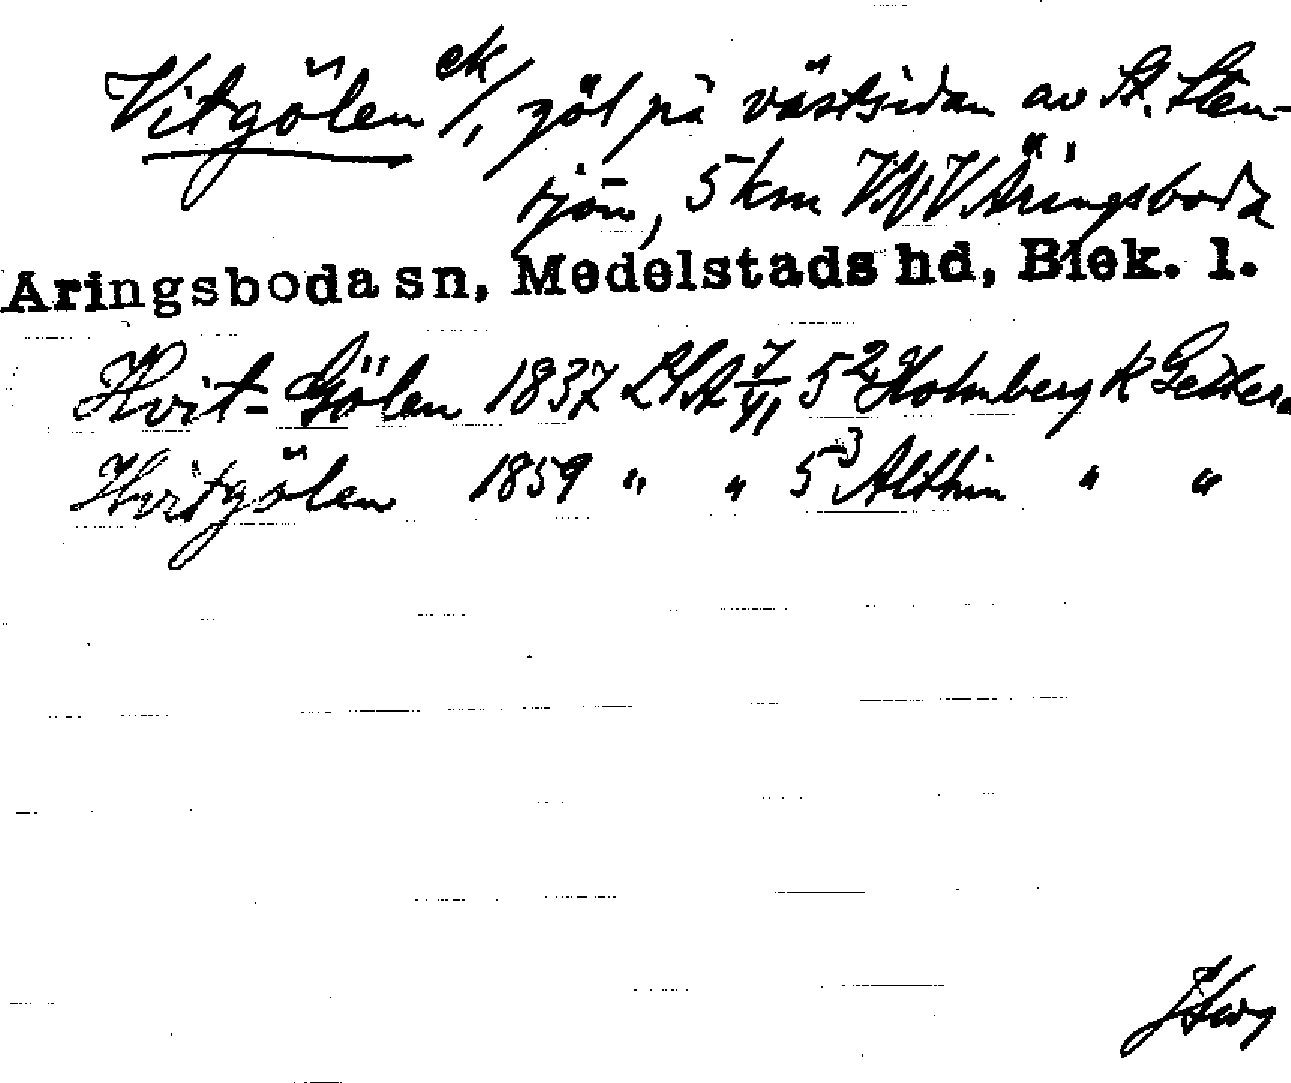 Vitgölen ek/, göl på västsidan av St. Sten-
sjön, 5 km VNV Äringsboda
Äringsboda sn, Medelstads hd, Blek. l.
Hvit-Gölen 1837 LSA 7/VI 5² Holmberg K
Hvitgölen 1859 " " 5³ Althin " "